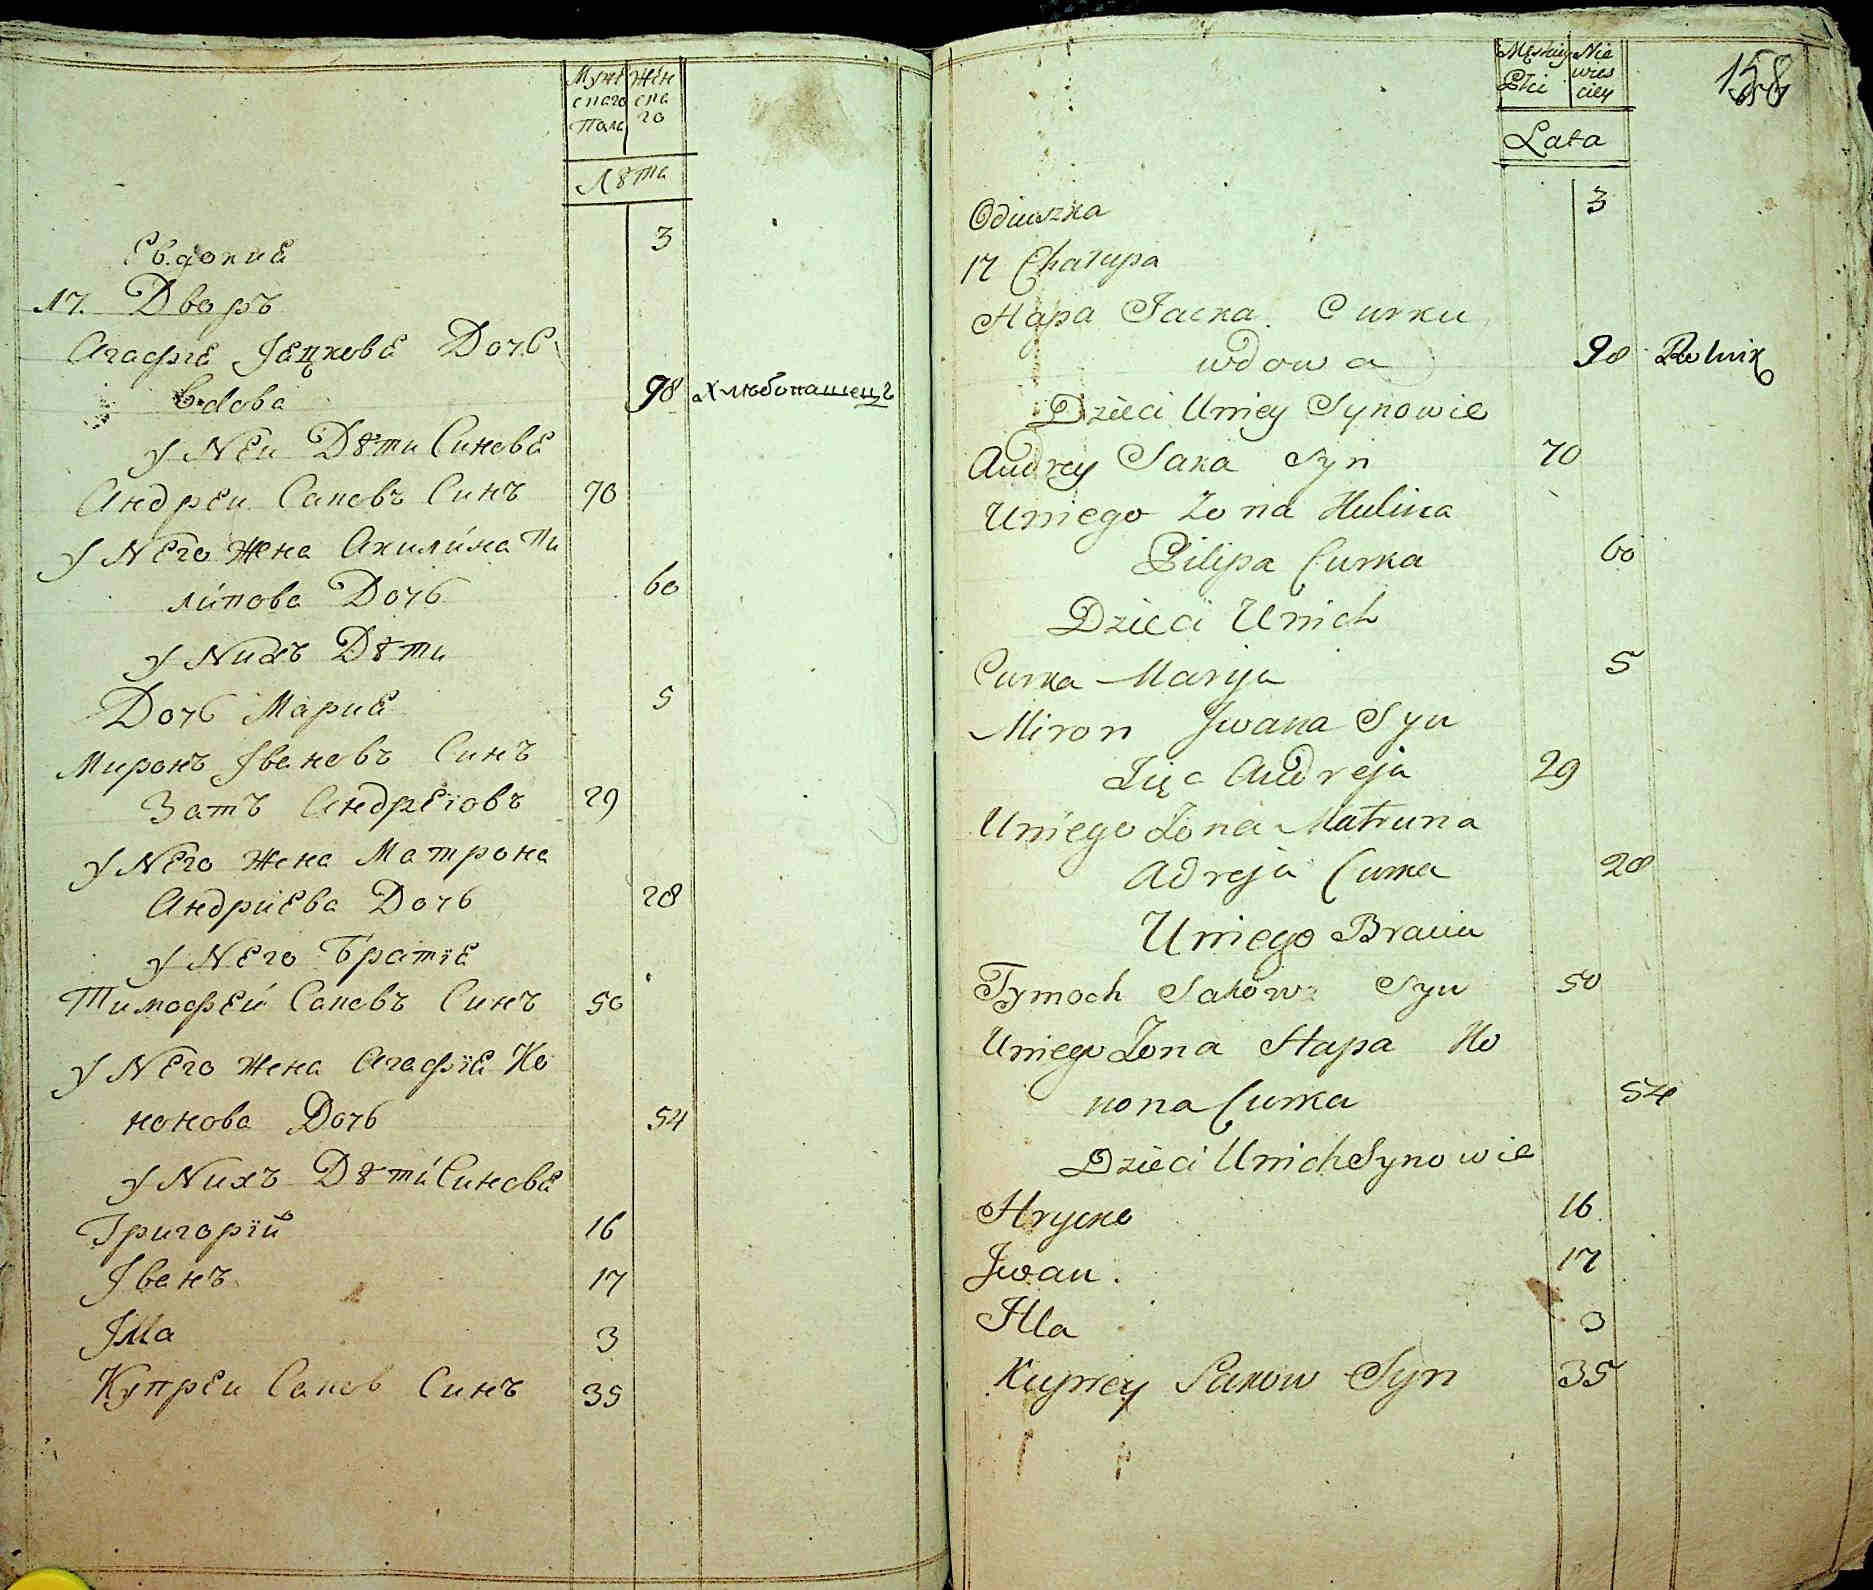 Муже Жен
скаго ска
Пола го
Лѣта
Евдокиа 3
17. Дворъ
Агафіа Іацкова Дочь
Вдова 98 Хлѣбопашецъ
У Неи Дѣти Синова
Андреи Саковъ Синъ 70
У Него Жена Акилина Пи
липова Дочь 60
У Нихъ Дѣти
Дочь Мариа 5
Миронъ Івановъ Синъ
Зать Андреіовъ 29
У Него Жена Матрона
Андриева Дочь 28
У Него Братіа
Тимофей Саковъ Синъ 50
У Него Жена Агафіа Ко
нонова Дочь 54
У Нихъ Дѣти Синова
Григорій 16
Іванъ 17
Илла 3
Купреи Саков Синъ 35
158
Męskiey Nie
Płci wies
ciey
Lata
Odiuszka 3
17 Chałupa
Hapa Jacka Curku
wdowa 98 Rolnik
Dzieci Uniey Synowie
Andrey Saka Syn 70
Uniego Zona Hulina
Pilipa Curka 60
Dzieci Unich
Curka Marija 5
Miron Jwana Syn
Zięc Andreja 29
Uniego Zona Matruna
Adreja Curka 28
Uniego Bracia
Tymoch Sakow Syn 50
Uniego Zona Hapa Ko
nona Curka 54
Dzieci Unich Synowie
Hrycko 16
Jwan. 17
Illa 3
Kuprey Sakow Syn 35